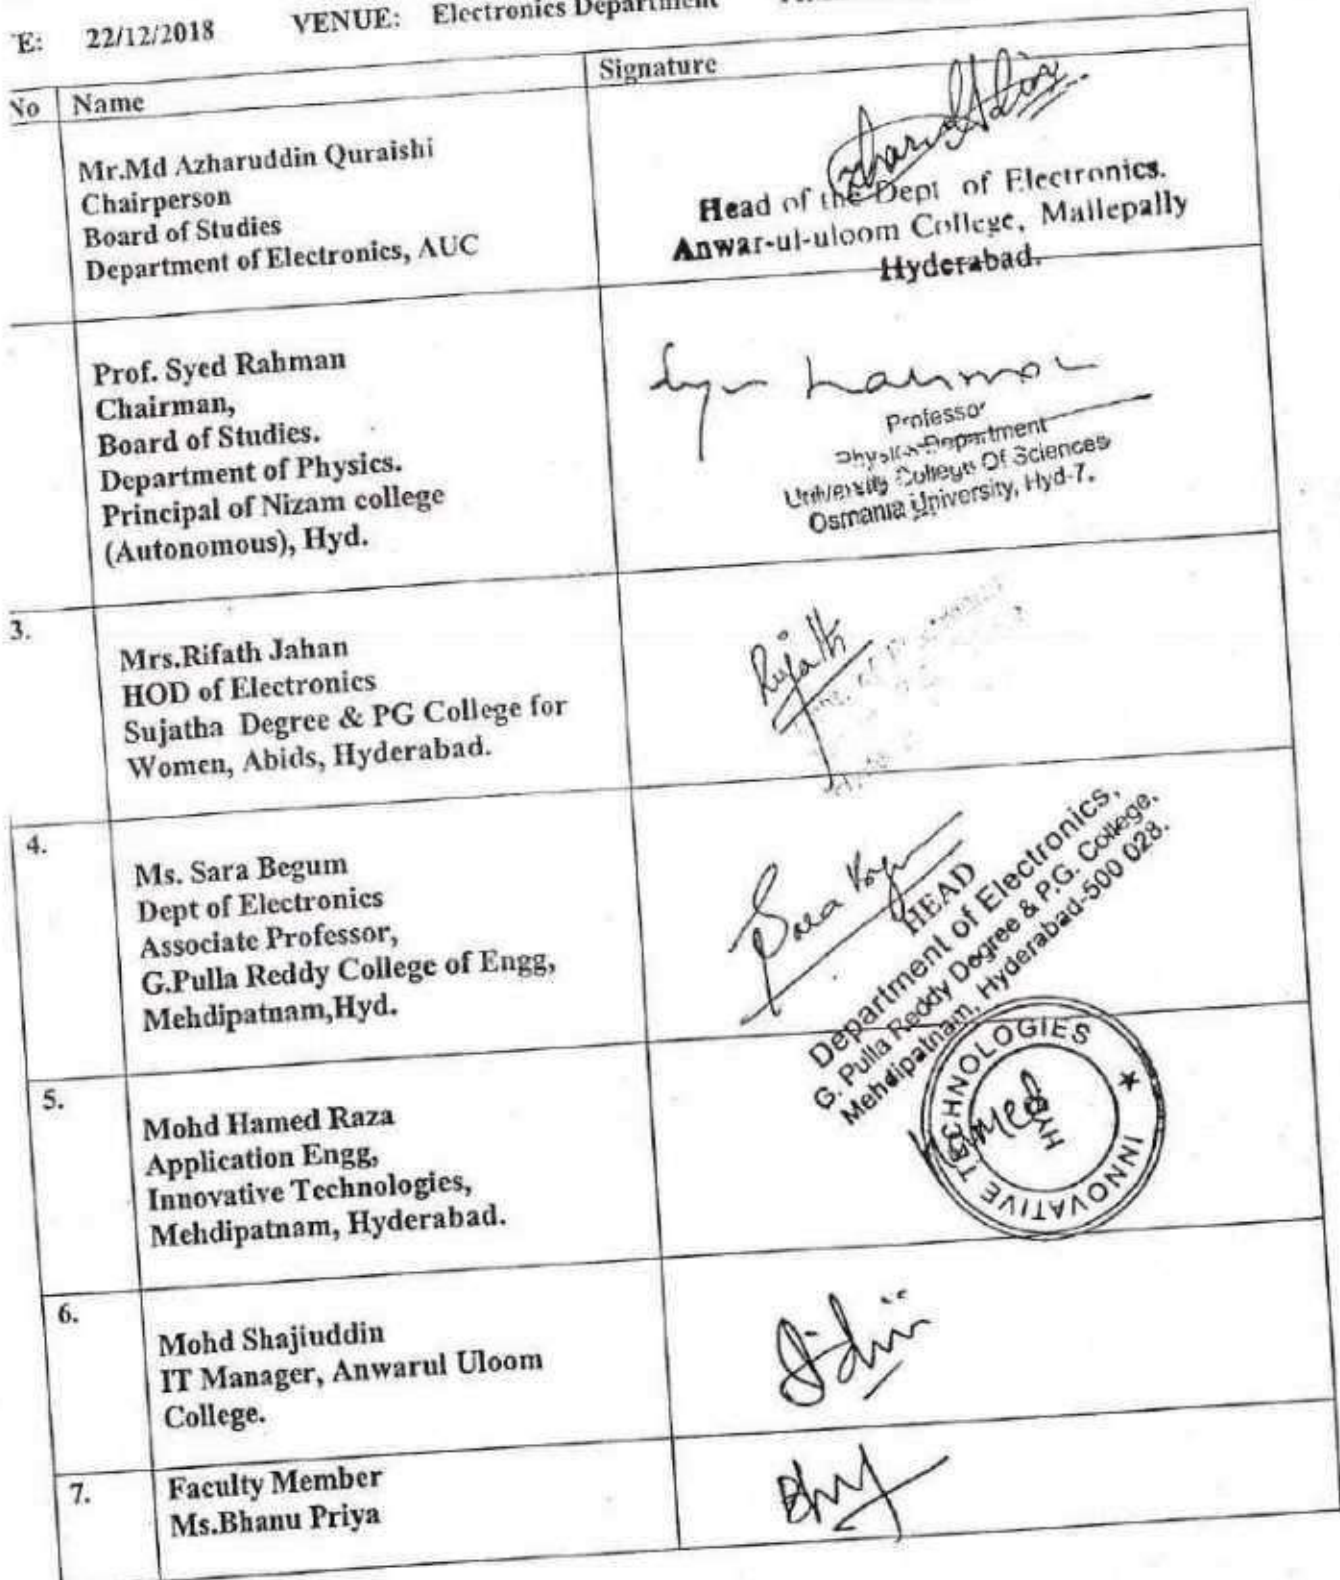 E: 22/12/2018 VENUE: Electronics Department
No Name Signature
Mr.Md Azharuddin Quraishi
Chairperson
Board of Studies
Department of Electronics, AUC
Head of the Dept of Electronics.
Anwar-ul-uloom College, Mallepally
Hyderabad.
Prof. Syed Rahman
Chairman,
Board of Studies.
Department of Physics.
Principal of Nizam college
(Autonomous), Hyd.
Professor
Physics Department
University College Of Sciences
Osmania University, Hyd-7.
3.
Mrs.Rifath Jahan
HOD of Electronics
Sujatha Degree & PG College for
Women, Abids, Hyderabad.
Rifath
4.
Ms. Sara Begum
Dept of Electronics
Associate Professor,
G.Pulla Reddy College of Engg,
Mehdipatnam,Hyd.
Sara
HEAD
Department of Electronics,
G. Pulla Reddy Degree & P.G. College,
Mehdipatnam, Hyderabad-500 028.
5.
Mohd Hamed Raza
Application Engg,
Innovative Technologies,
Mehdipatnam, Hyderabad.
Hamed
INNOVATIVE TECHNOLOGIES ★
HYD
6.
Mohd Shajiuddin
IT Manager, Anwarul Uloom
College.
7.
Faculty Member
Ms.Bhanu Priya